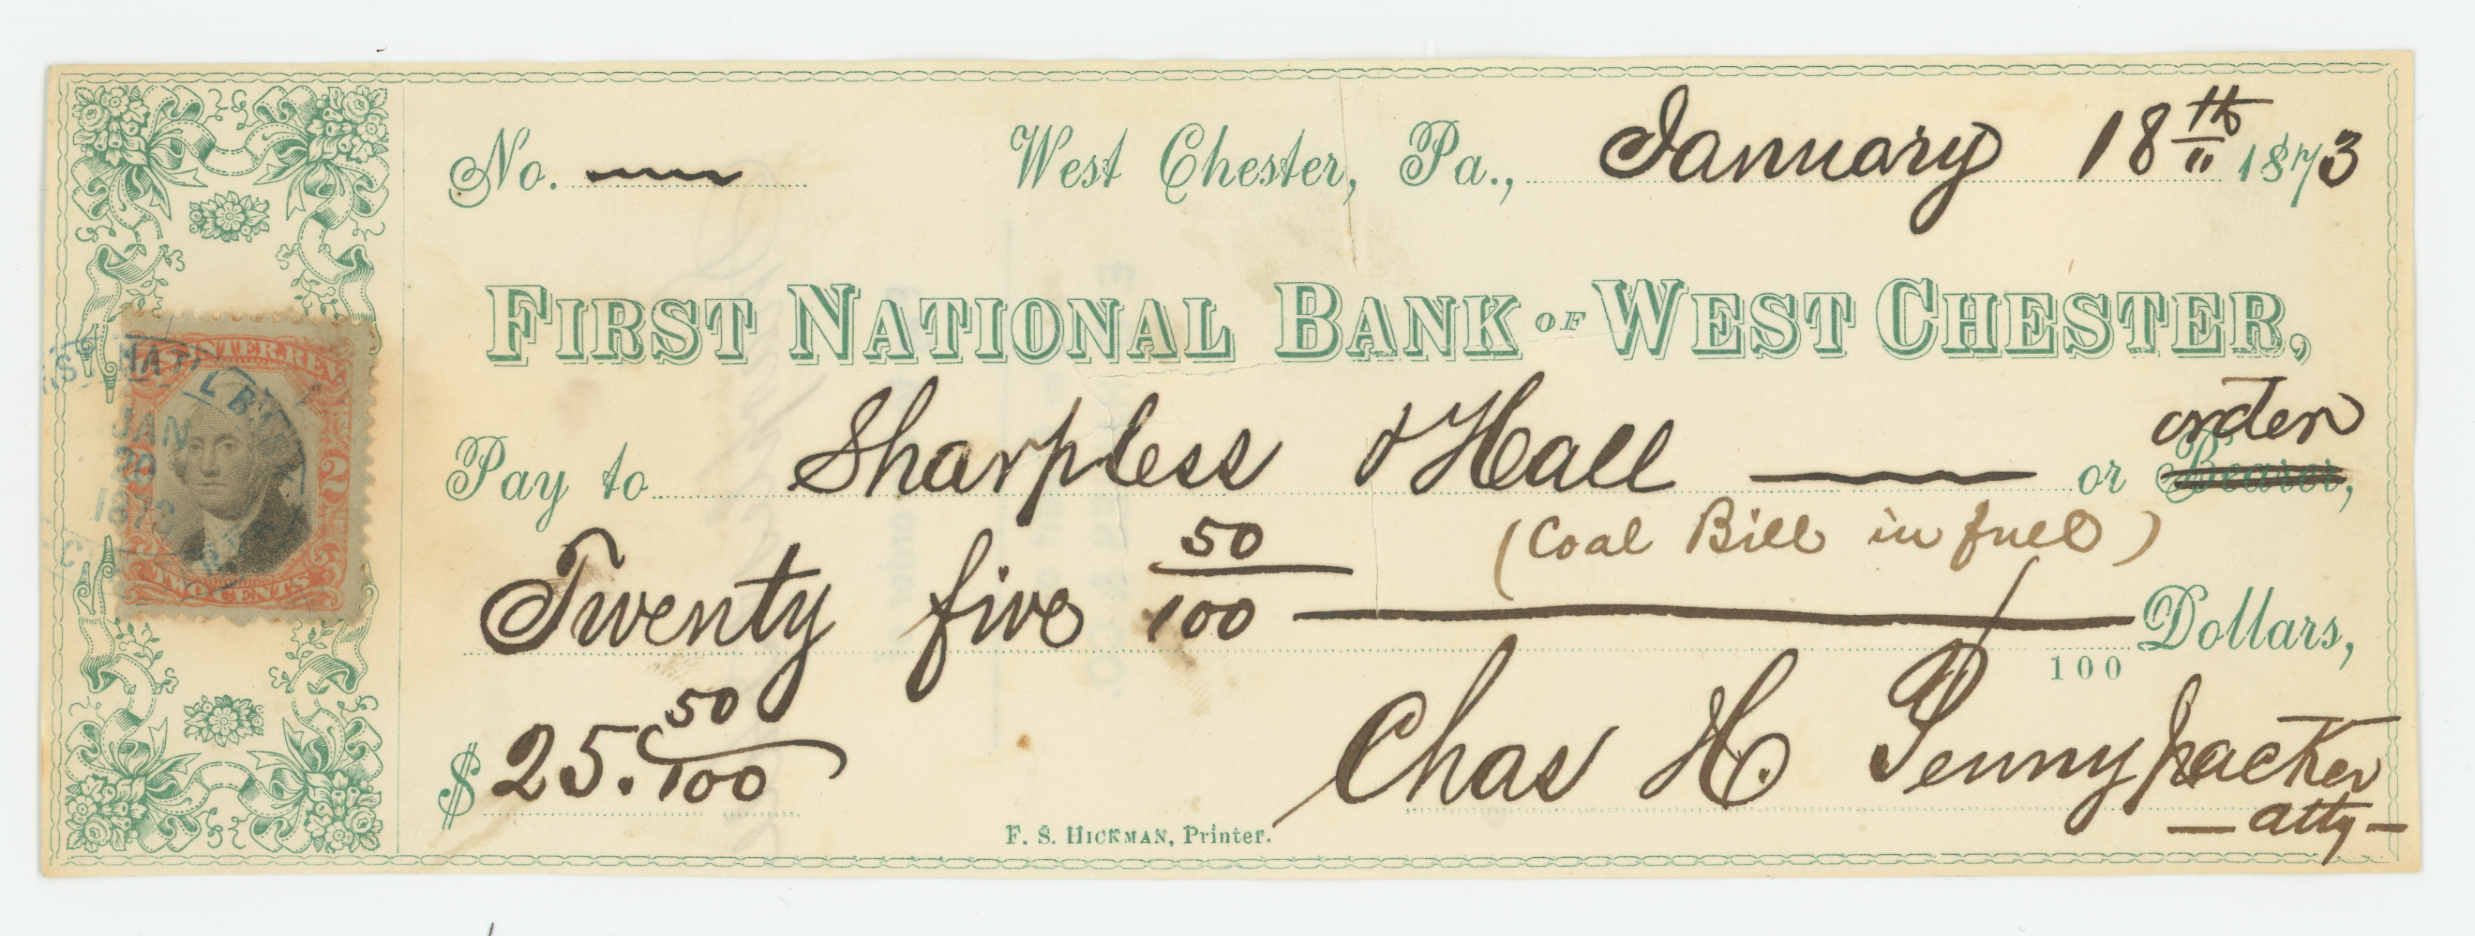 No. West Chester, Pa., January 18th 1873
FIRST NATIONAL BANK OF WEST CHESTER,
order
Pay to Sharpless & Hall or Bearer,
(Coal Bill in full)
Twenty five 50/100 Dollars,
100
$25.50/100 Chas H. Pennypacker
atty
F. S. HICKMAN, Printer.
INTER. REV.
JAN
20
1873
2
TWO CENTS